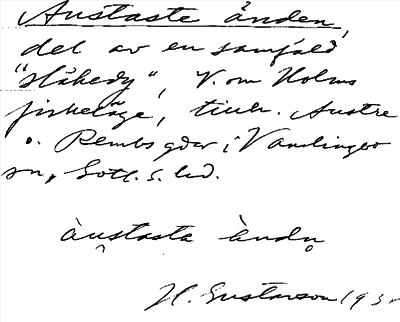 Austaste änden,
del av en samfäld
"slåkedy", V. om Holms
fiskeläge, tillh. Austre
o. Rembs gdar i Vamlingbo
sn, Gotl. S. hd.
àu̯stasta ǟndn̥
H. Gustavson 193